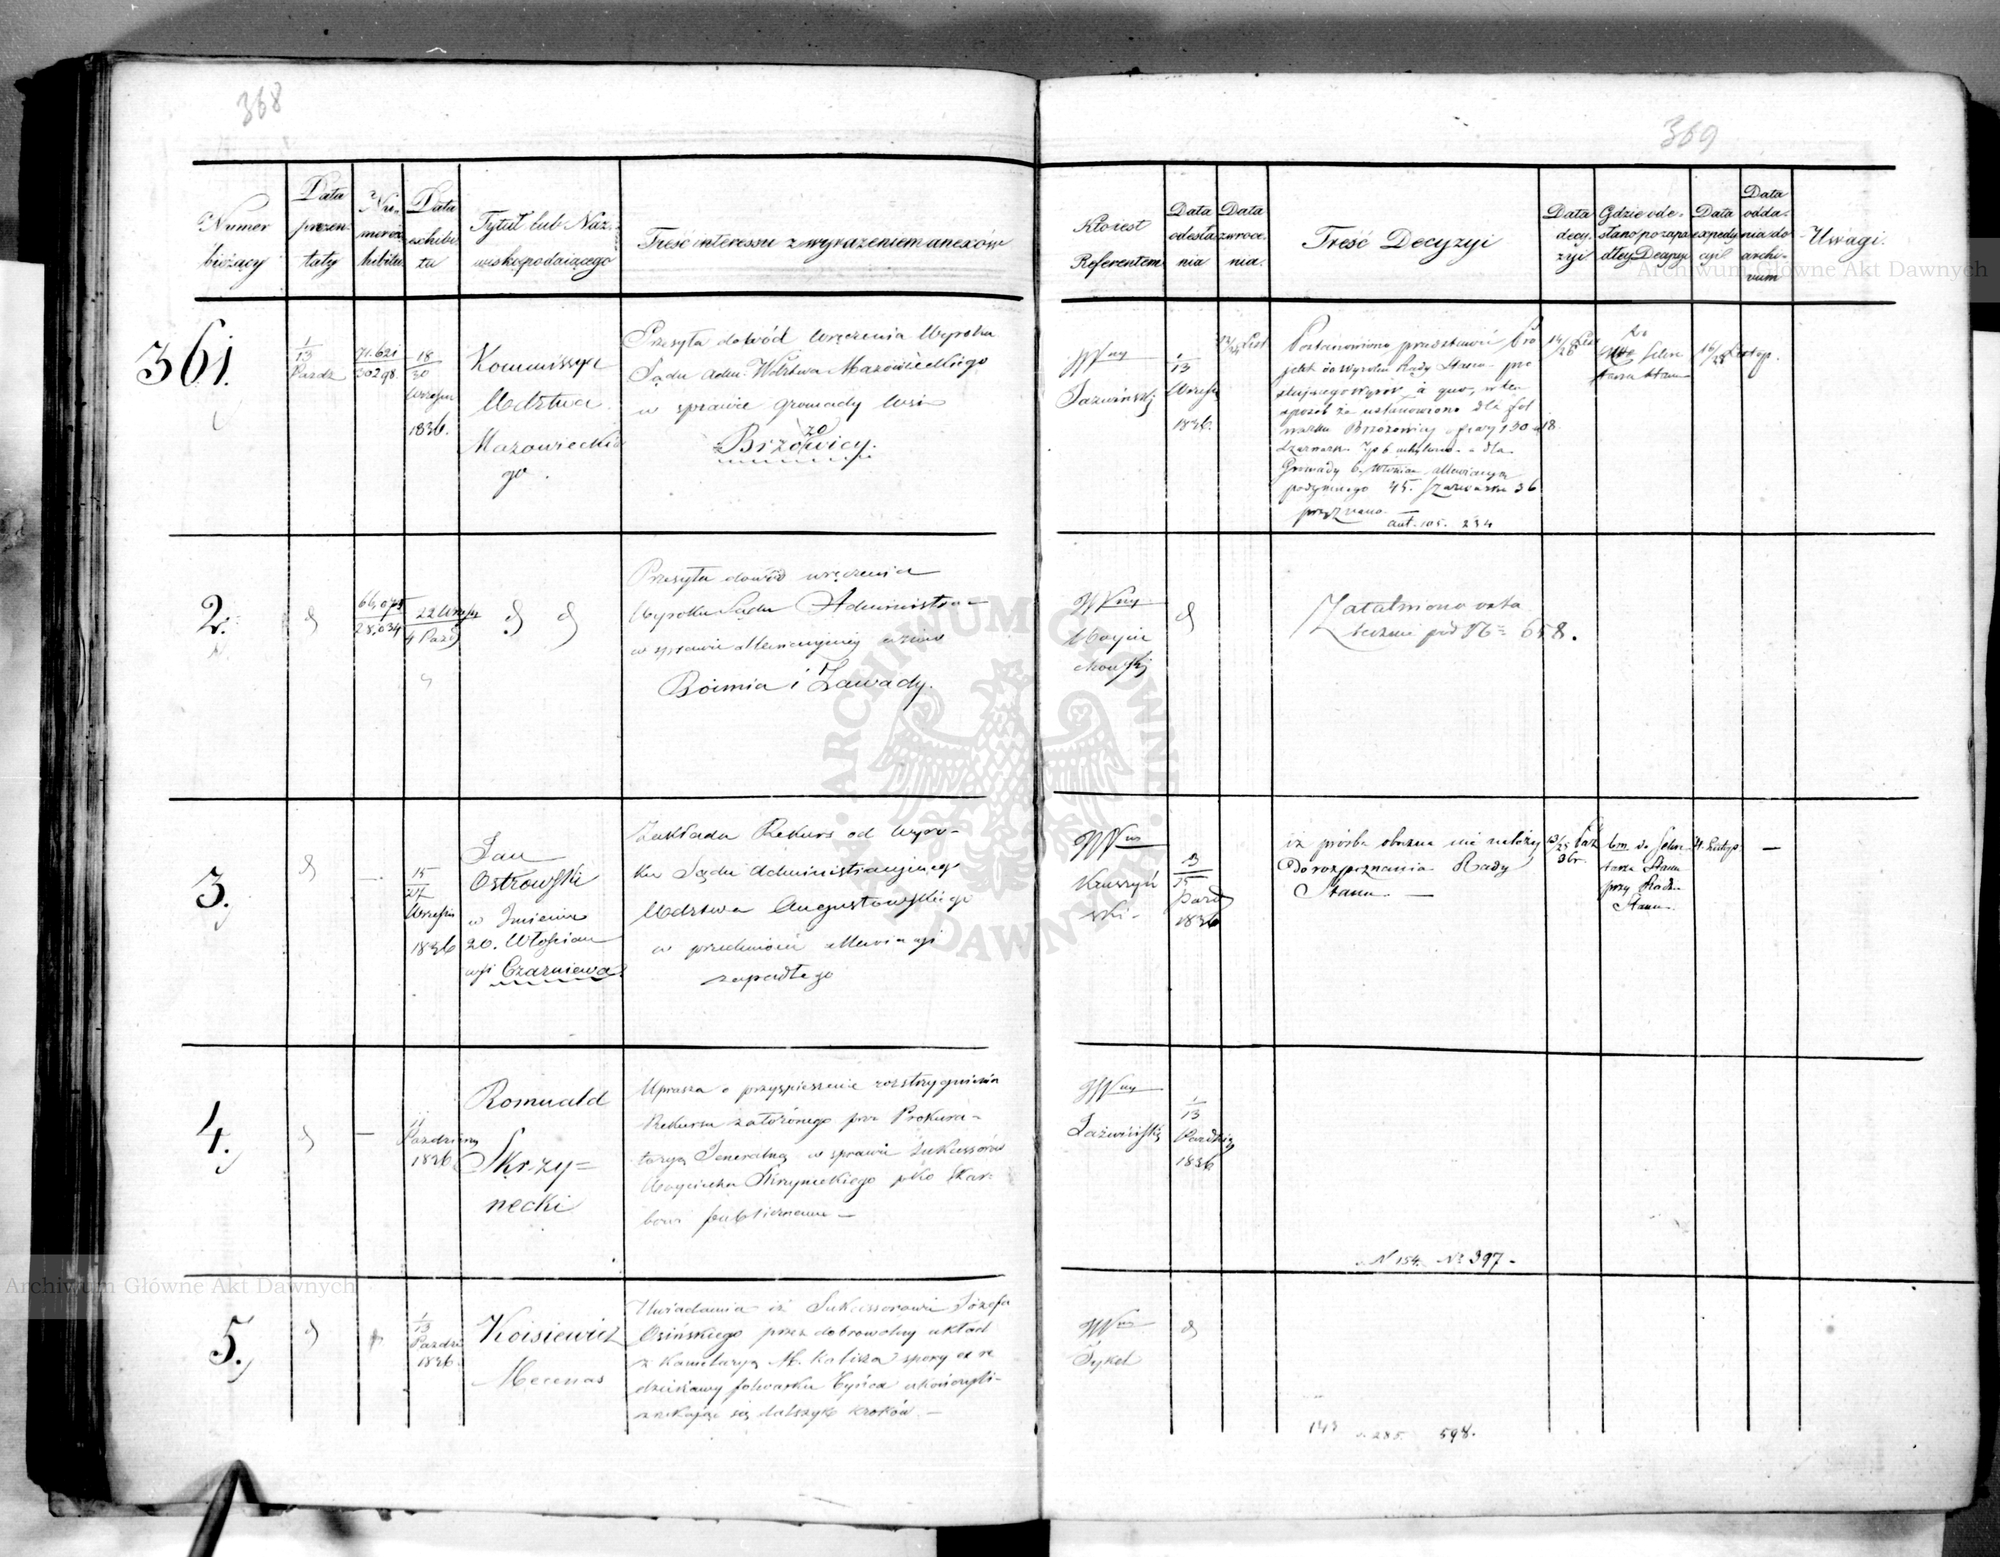 368
Numer
bieżący
Data
prezen-
taty
Nu-
mer ex-
hibitu
Data
exhibi-
tu
Tytuł lub Naz-
wisko podaiącego
Treść interessu z wyrażeniem anexów
361.
1
13
Pazdz
71.621
30298.
18
30
Wrześn
1836.
Kommissya
Wdztwa
Mazowieckie
go.
Przesyła dowód wręczenia Wyroku
Sądu Adm. Wdztwa Mazowieckiego
w sprawie gromady wsi
zo
Brzowicy.
2.
d
66,075
28.034
22 Wrześ
4 Pazd
d d
Przesyła dowód wręczenia
Wyroku Sądu Administra-
w sprawie
Boimia i Zawady.
3.
d
15
27
Wrześn
1836
Jan
Ostrowski
w Imieniu
20. Włościan
wsi Czarniewa
Zakłada Rekurs od Wyro-
ku Sądu Administracyjnego
Wdztwa Augustowskiego
w przedmiocie
zapadłego
4.
d
—
11
Pazdzier
1836
Romuald
Skrzy=
necki
Uprasza o przyspieszenie rozstrzygnienia
Rekursu założonego prze Prokura-
toryą Jeneralną w sprawie Sukcessorów
Wojciecha Skrzyneckiego pko Skar-
bowi publicznemu —
5.
d
1
13
Pazdz
1836.
Koisiewicz
Mecenas
Uwiadamia iż Sukcessorowie Józefa
Osińskiego przez dobrowolny układ
z Kameraryą M. Kalisza spory
dzierżawy folwarku Tyńca ukończyli-
zrzekając się dalszych kroków. —
369
Kto iest
Referentem
Data
odesła
nia
Data
zwroce-
nia.
Treść Decyzyi
Data
decy-
zyi
Gdzie ode-
słano po zapa-
dłey Decyzyi
Data
expedy
cyi
Data
odda-
nia do
archi-
vum
Uwagi.
JWny
Jazwiński
1
13
Wrześn
1836.
12/24 List
Postanowiono przedstawić Pro
jekt do Wyroku Rady Stanu
sposób że ustanowiono dla fol
warku Brzozowicy ofiary 130
Gromady
podymnego 45. Szarwarku 36
przyznano —
ant. 105. 234
14/26 List
do Sekre
tarza Stanu
16/28 Listop.
JWny
Woycie
chowski
d
Załatwiono
bieżące pod № 658.
JWny
Kruszyń
ski-
3
15
Pazd
1836
iż prośba obecna nie należy
Do rozpoznania Rady
Stanu —
13/25 Paź
36 r.
do Sekre
tarza Stanu
przy Radzie
Stanu.
4 Listop
—
JWny
Jaźwiński
1
13
Pazdz
1836
N 154. No 397-
JWny
Tykel
d
143
285.
598.
Archiwum Główne Akt Dawnych
Archiwum Główne Akt Dawnych
ARCHIWUM GŁÓWNE AKT DAWNYCH